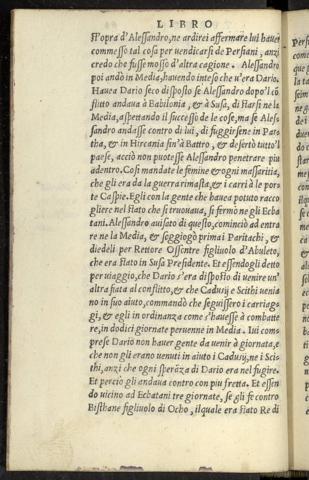 LIBRO
st'opra d'Alessandro, ne ardirei affermare lui hauer
commesso tal cosa per uendicarsi de Persiani, anzi
credo che fusse mosso d'altra cagione. Alessandro
poi andò in Media, hauendo inteso che u'era Dario.
Hauea Dario seco disposto se Alessandro dopo'l cō
flitto andaua à Babilonia, & à Susa, di starsi ne la
Media, aspettando il successo de le cose, ma se Ales
sandro andasse contro di lui, di fuggirsene in Par
tha, & in Hircania sin'à Battro, & desertò tutto'l
paese, acciò non puotesse Alessandro penetrare piu
adentro. Cosi mandate le femine & ogni massaritia,
che gli era da la guerra rimasta, & i carri à le por
te Caspie. Egli con la gente che hauea potuto racco
gliere nel stato che si truouaua, si fermò ne gli Ecba
tani. Alessandro auisato di questo, cominciò ad entra
re ne la Media, & soggiogò prima i Paritachi, &
diedeli per Rettore Ossentre figliuolo d'Abuleto,
che era stato in Susa Presidente. Et essendogli detto
per uiaggio, che Dario s'era disposto di uenire un'
altra fiata al conflitto, & che Cadusij e Scithi uenia
no in suo aiuto, commandò che seguissero i carriag
gi, & egli in ordinanza come s'hauesse à combatte
re, in dodici giornate peruenne in Media. Iui com
prese Dario non hauer gente da uenir à giornata, e
che non gli erano uenuti in aiuto i Cadusij, ne i Scit
thi, anzi che ogni sperāza di Dario era nel fugire.
Et perciò gli andaua contro con piu fretta. Et essen
do uicino ad Ecbatani tre giornate, se gli fe contro
Bisthane figliuolo di Ocho, ilquale era stato Re di